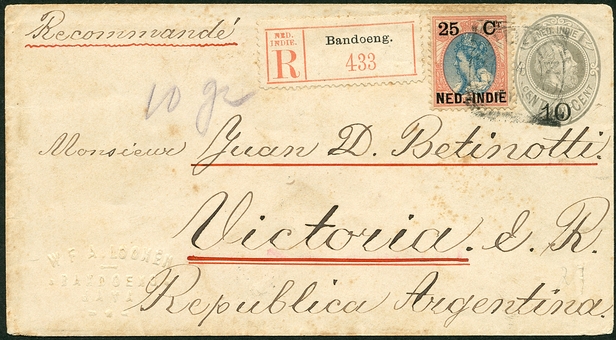 Recommandé
NED.
INDIE.
R
Bandoeng.
433
25 Ct
NED.-INDIE
NED. INDIE
CENT
10
10 gr
Monsieur Juan D. Betinotti.
Victoria. E. R.
Republica Argentina.